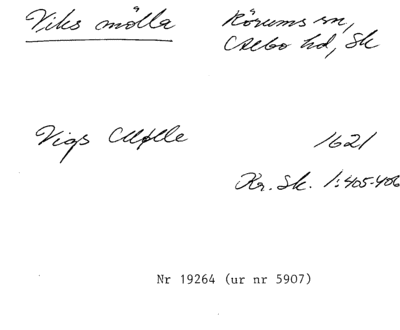 Viks mölla
Rörums sn,
Albo hd, Sk
Vigs Mølle
1621
Kr. Sk. 1:405-406
Nr 19264 (ur nr 5907)